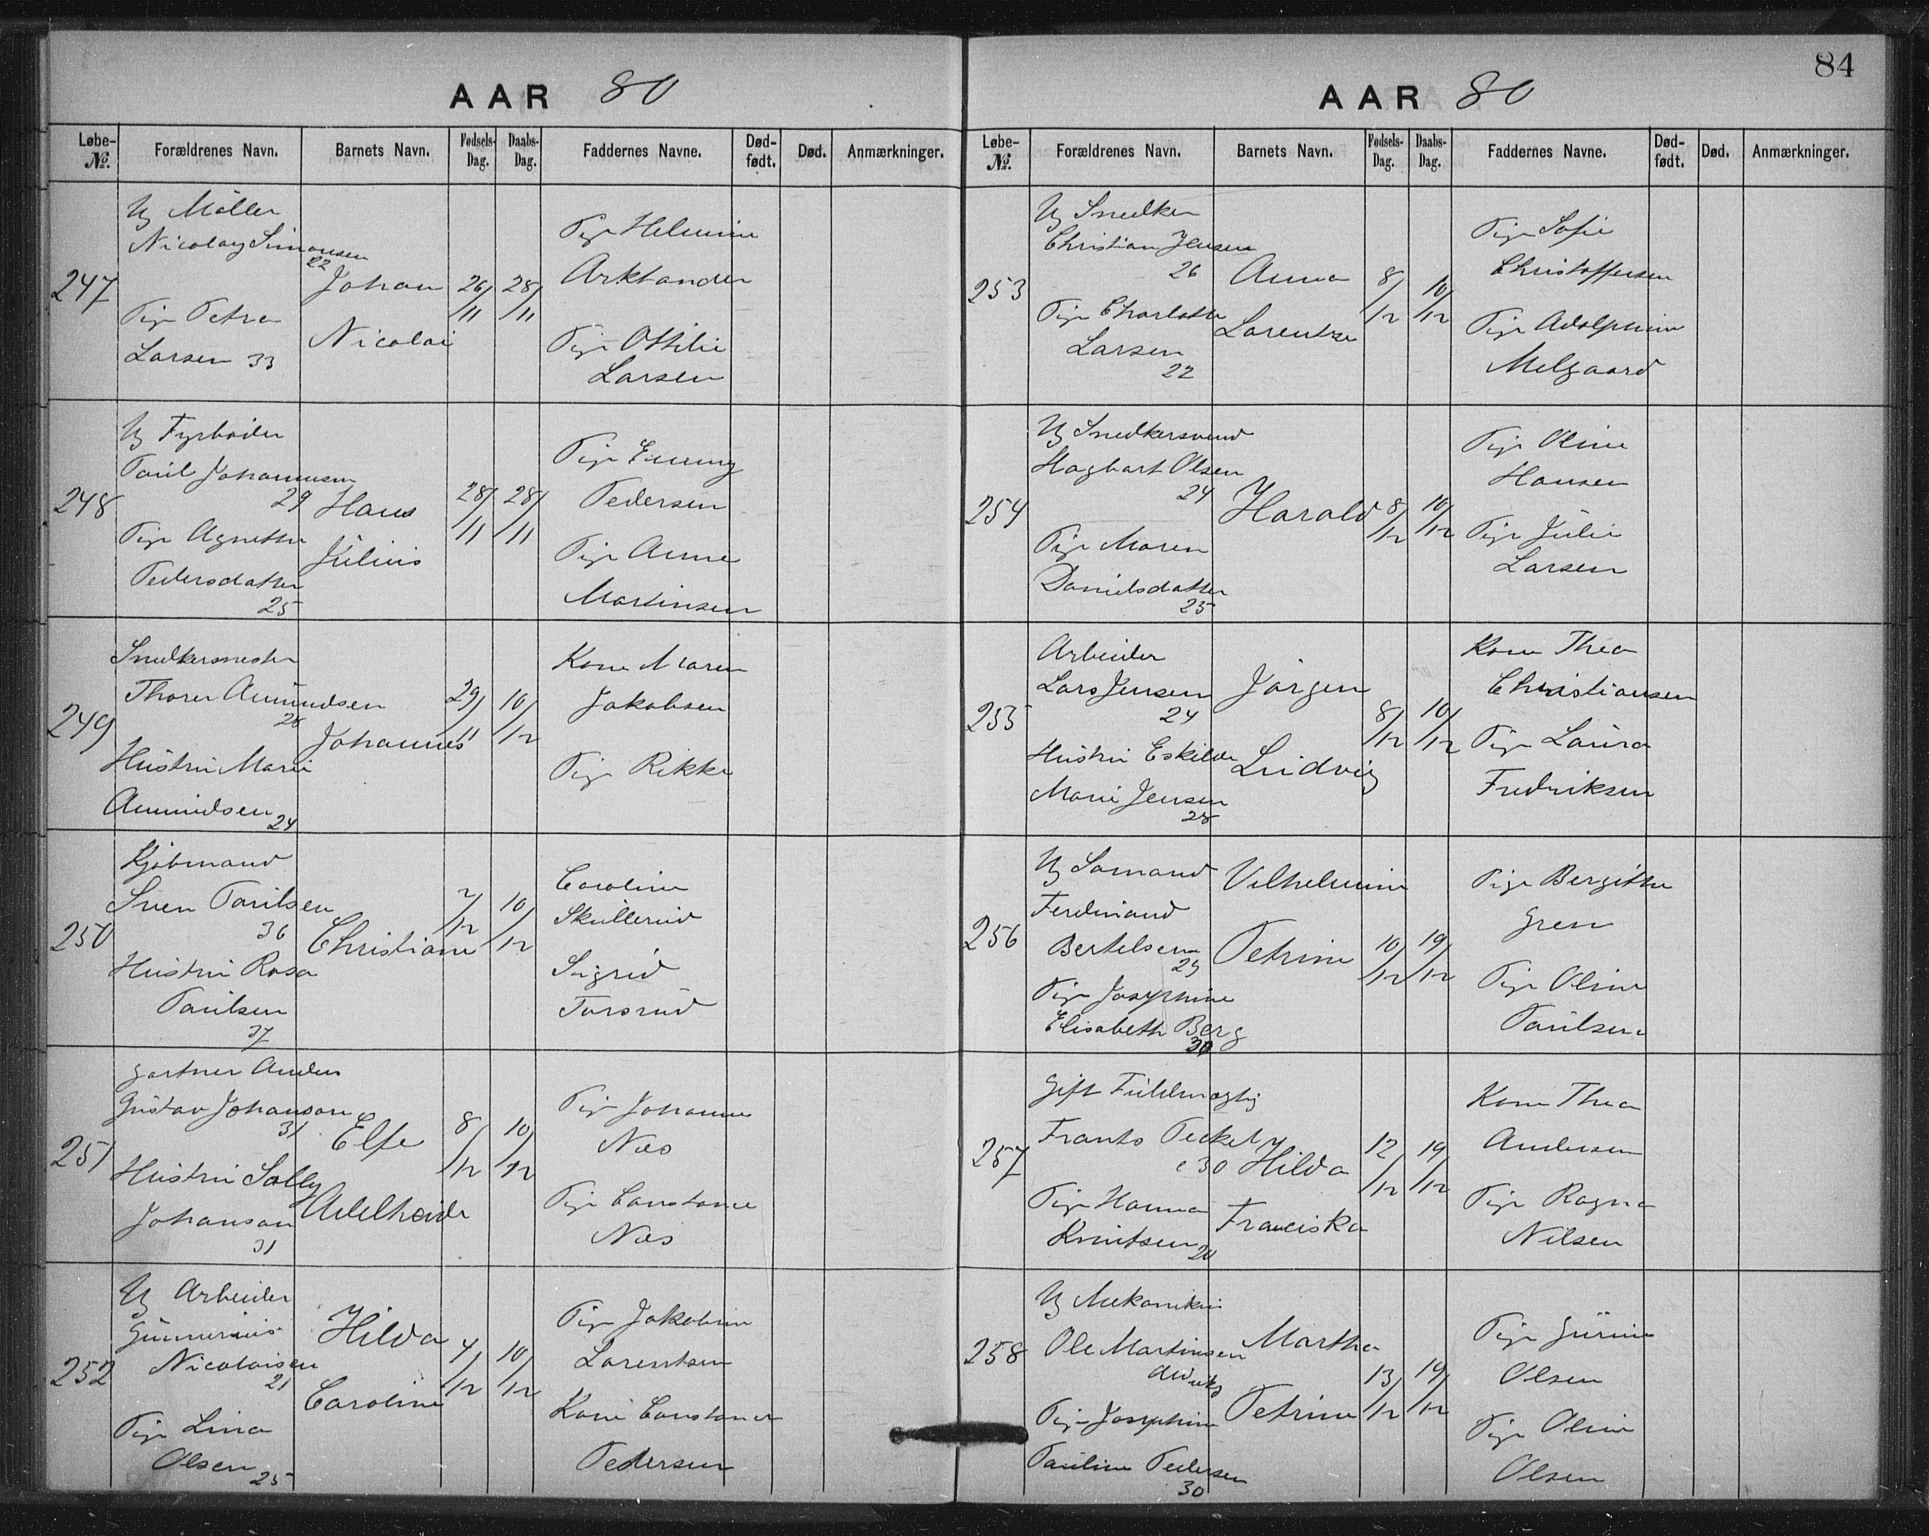 AAR 80
Løbe-No.
Forældrenes Navn.
Barnets Navn.
Fødsels-Dag.
Daabs-Dag.
Faddernes Navne.
Død-født.
Død.
Anmærkninger.
247
Ug Møller
Nicolay Simonsen
22
Pige Petra
Larsen 33
Johan
Nicolai
26/11
28/11
Pige Helmine
Arktander
Pige Ottilie
Larsen
248
Ug Fyrbøder
Paul Johannesen
29
Pige Agnethe
Pedersdatter
25
Hans
Julius
28/11
28/11
Pige Emmy
Pedersen
Pige Anne
Martinsen
249
Snedkermester
Thorer Amundsen
26
Hustru Marie
Amundsen 24
Johannes
29/11
10/12
Kone Maren
Jakobsen
Pige Rikke
250
Kjøbmand
Sven Paulsen
36
Hustru Rosa
Paulsen
37
Christiane
7/12
10/12
Caroline
Skullerud
Sigrid
Torsrud
251
Gartner Anders
Gustav Johanson
31
Hustru Sally
Johanson
31
Elfe
Adelheide
8/12
10/12
Pige Johanne
Næs
Pige Constance
Næs
252
Ug Arbeider
Gunnerius
Nicolaisen
21
Pige Lina
Olsen 25
Hilda
Caroline
4/12
10/12
Pige Jakobine
Lorentsen
Kone Constance
Pedersen
84
AAR 80
Løbe-No.
Forældrenes Navn.
Barnets Navn.
Fødsels-Dag.
Daabs-Dag.
Faddernes Navne.
Død-født.
Død.
Anmærkninger.
253
Ug Snedker
Christian Jensen
26
Pige Charlotte
Larsen
22
Anna
Lorentze
8/12
10/12
Pige Sofie
Christoffersen
Pige Adolphine
Melgaard
254
Ug Snedkersvend
Hagbart Olsen
24
Pige Maren
Danielsdatter
25
Harald
8/12
10/12
Pige Oline
Hansen
Pige Julie
Larsen
255
Arbeider
Lars Jensen
24
Hustru Eskilde
Marie Jensen
28
Jørgen
Ludvig
8/12
10/12
Kone Thea
Christiansen
Pige Laura
Fredriksen
256
Ug Sømand
Ferdinand
Bertelsen
29
Pige Josephine
Elisabeth Berg
30
Vilhelmine
Petrine
10/12
19/12
Pige Bergitte
Gren
Pige Oline
Paulsen
257
Gift Fuldmægtig
Frants Peckel
c 30
Pige Hanna
Knutsen 20
Hilda
Franciska
12/12
19/12
Kone Thea
Andersen
Pige Ragna
Nilsen
258
Ug Mekanikus
Ole Martinsen
Pige Josephine
Pauline Pedersen
30
Martha
Petrine
13/12
19/12
Pige Gurine
Olsen
Pige Oline
Olsen